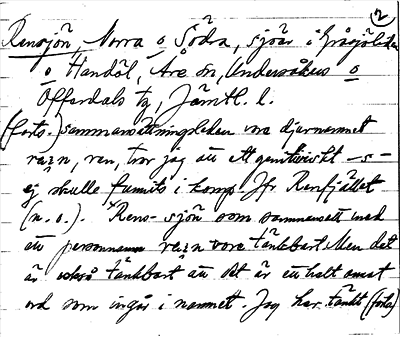 2
Rensjön, Norra o Södra, sjöar i
o Handöl, Åre sn, Undersåkers o
Offerdals tg, Jämtl. l.
(forts.) sammansättningsleden vore djurnamnet
ren, tror jag att ett genitiviskt -s-
ej skulle funnits i komp. Jfr Renfjället
(n. o.). *Rens-sjön som sammansatt med
ett personnamn vore tänkbart. Men det
är också tänkbart att det är ett helt annat
ord som ingår i namnet. Jag har tänkt (forts)